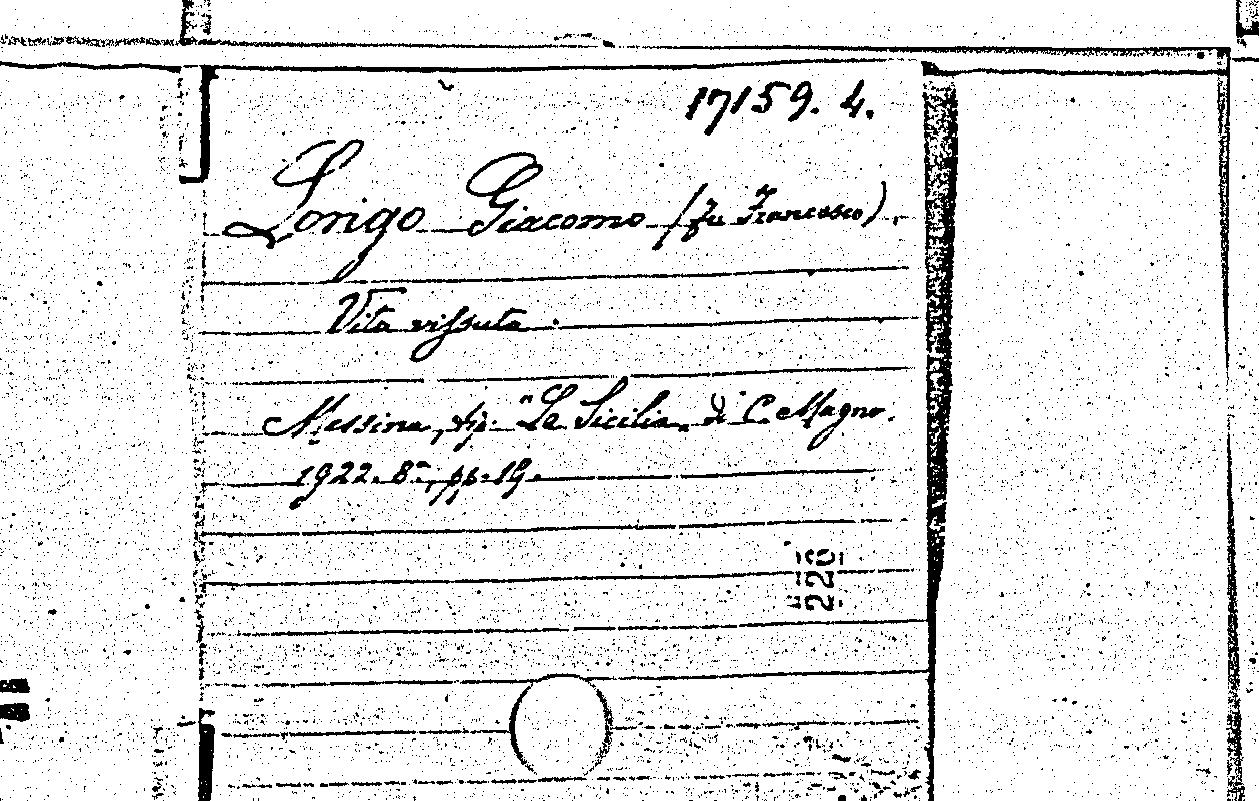 17159. 4.
Lorigo Giacomo (fu Francesco).
Vita vissuta.
Messina, tip. "La Sicilia„ di C. Magno.
1922. 8°, pp. 19.
220